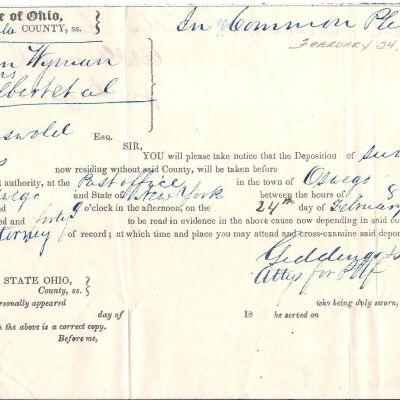 e of Ohio,
COUNTY, ss.
In Common Ple
FEBRUARY 24,
n Wyman
vs
lbert et al
swold Esq.
SIR,
YOU will please take notice that the Deposition of
now residing without said County, will be taken before
t authority, at the Post office in the town of Oswego
wego and State of New York between the hours of 8
nd 9 o'clock in the afternoon, on the 24th day of February
ed and forty to be read in evidence in the above cause now depending in said co
ttorney of record; at which time and place you may attend and cross-examine said depo
Giddings &
Attys for Plff
STATE OHIO,
County, ss.
ersonally appeared who being duly sworn,
day of 18 he served on
h the above is a correct copy.
Before me,